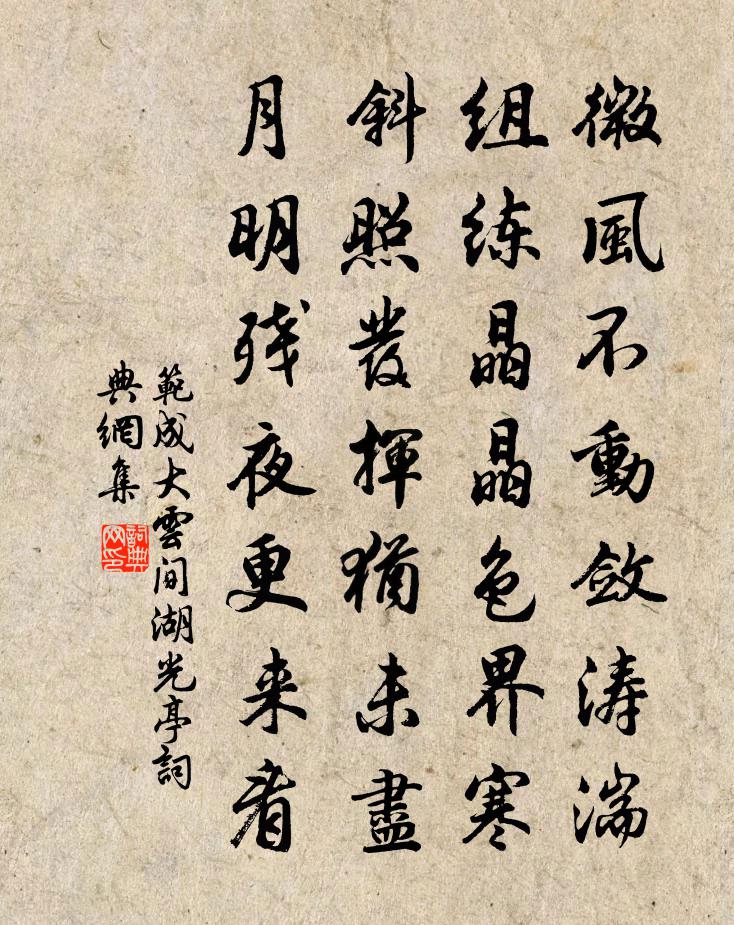 微風不動斂涛湍
组练晶晶色界寒
斜照發揮猶未盡
月明残夜更来看
範成大雲间湖光亭詞
典網集
詞典网印